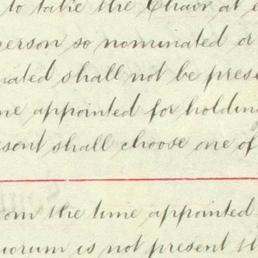 to take the Chair at
person so nominated or
nated shall not be prese
me appointed for holdin
esent shall choose one of
om the time appointed
uorum is not present th